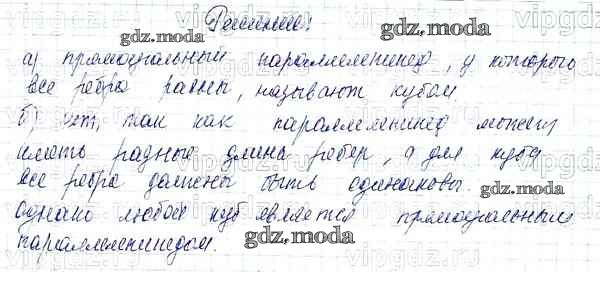 Решение:
а) прямоугольный параллелепипед, у которого
все ребра равны, называют кубом.
б) нет, так как параллелепипед может
иметь разную длину ребер, а для куба
все ребра должны быть одинаковы.
Однако любой куб является прямоугольным
параллелепипедом.
gdz.moda
gdz.moda
gdz.moda
gdz.moda
gdz.moda
vipgdz.ru